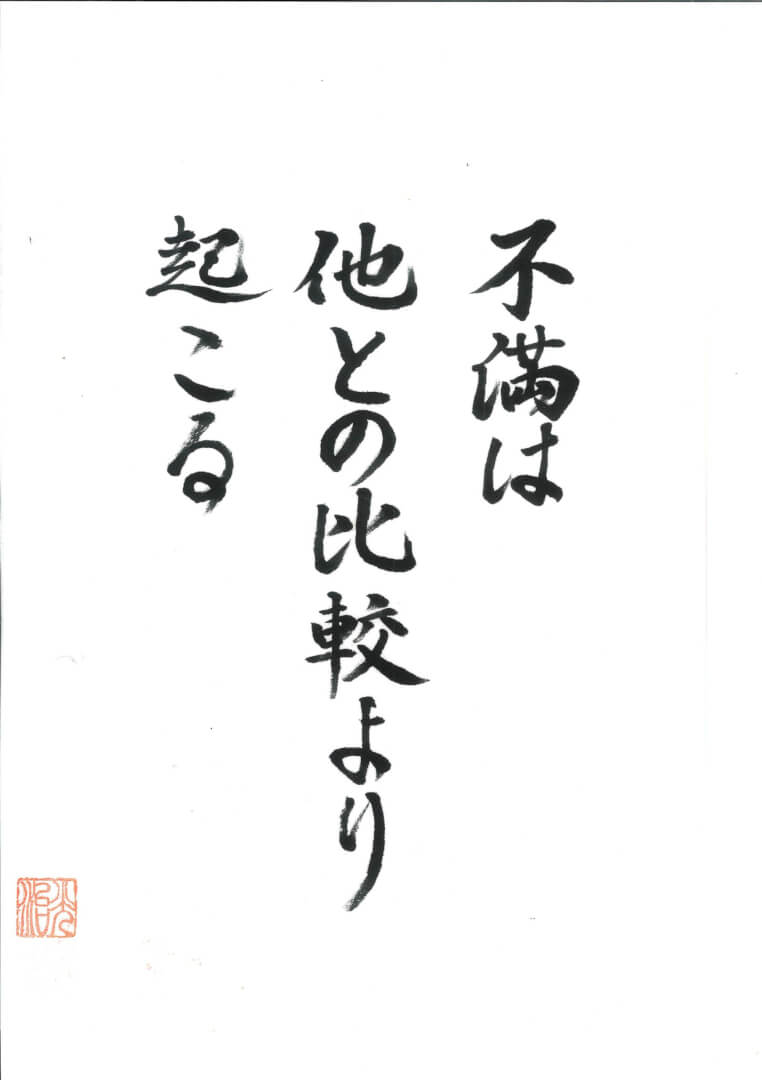 不満は
他との比較より
起こる